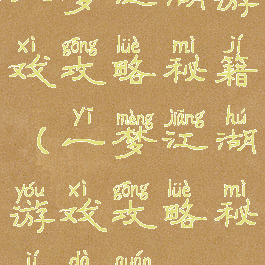 梦江湖游
xì gōng lüè mì jí
戏攻略秘籍
yī mèng jiāng hú
(一梦江湖
yóu xì gōng lüè mì
游戏攻略秘
jí dà quán